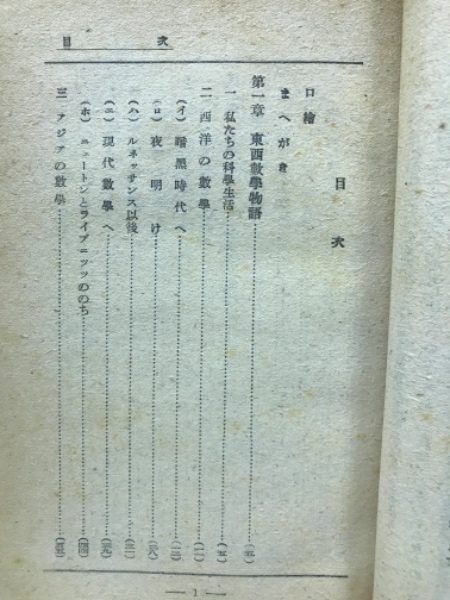 目 次
目 次
口繪
まへがき
第一章 東西數學物語
一 私たちの科學生活
二 西洋の數學
(イ) 暗黑時代へ
(ロ) 夜明け
(ハ) ルネッサンス以後
(ニ) 現代數學へ
(ホ) ニュートンとライプニッツののち
三 アジアの數學
— 1 —